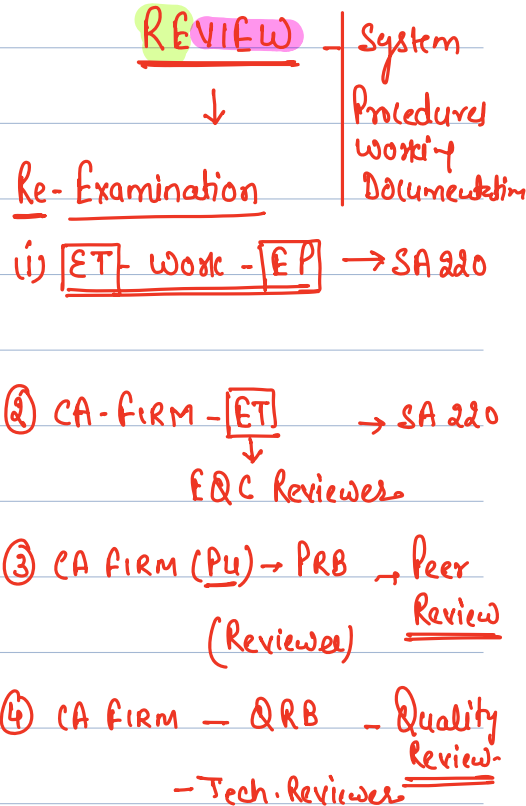 REVIEW - System
Procedures
Working
Documentation
↓
Re-Examination
(i) ET - Work - EP → SA 220
② CA-FIRM - ET → SA 220
↓
EQC Reviewer
③ CA FIRM (PU) → PRB → Peer
Review
(Reviewer)
④ CA FIRM - QRB - Quality
Review
- Tech. Reviewer